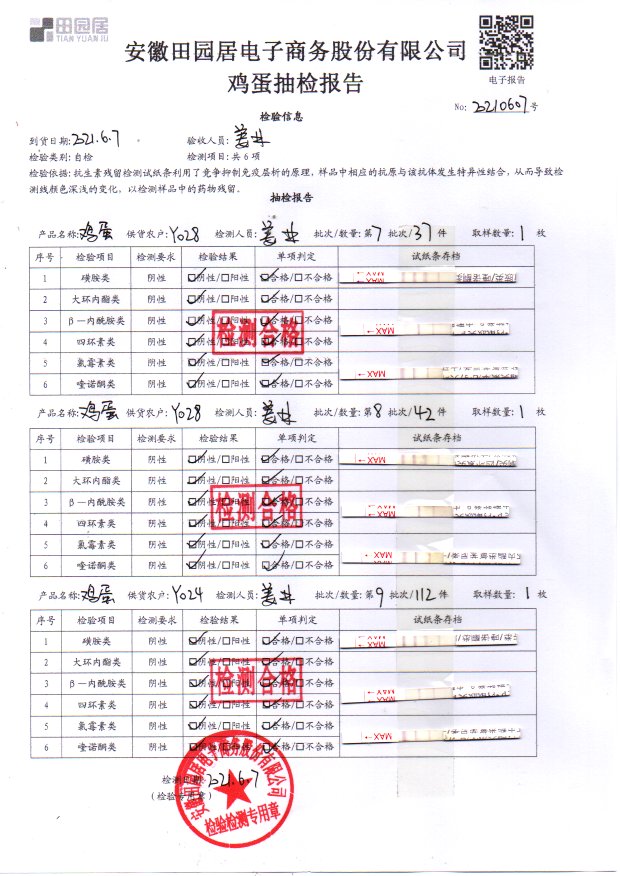 田园居
TIAN YUAN JU
安徽田园居电子商务股份有限公司
鸡蛋抽检报告
电子报告
No: 20210607号
检验信息
到货日期: 2021.6.7 验收人员:
检验类别: 自检 检测项目: 共 6 项
检验依据: 抗生素残留检测试纸条利用了竞争抑制免疫层析的原理, 样品中相应的抗原与该抗体发生特异性结合, 从而导致检
测线颜色深浅的变化, 以检测样品中的药物残留。
抽检报告
产品名称: 鸡蛋 供货农户: Y028 检测人员: 批次/数量: 第 7 批次/ 37 件 取样数量: 1 枚
序号 检验项目 检测要求 检验结果 单项判定 试纸条存档
1 磺胺类 阴性 ☑阴性/□阳性 ☑合格/□不合格 MAX
2 大环内酯类 阴性 ☑阴性/□阳性 ☑合格/□不合格
3 β—内酰胺类 阴性 ☑阴性/□阳性 ☑合格/□不合格 MAX
4 四环素类 阴性 ☑阴性/□阳性 ☑合格/□不合格
5 氯霉素类 阴性 ☑阴性/□阳性 ☑合格/□不合格 MAX
6 喹诺酮类 阴性 ☑阴性/□阳性 ☑合格/□不合格
检测合格
产品名称: 鸡蛋 供货农户: Y028 检测人员: 批次/数量: 第 8 批次/ 42 件 取样数量: 1 枚
序号 检验项目 检测要求 检验结果 单项判定 试纸条存档
1 磺胺类 阴性 ☑阴性/□阳性 ☑合格/□不合格 MAX
2 大环内酯类 阴性 ☑阴性/□阳性 ☑合格/□不合格
3 β—内酰胺类 阴性 ☑阴性/□阳性 ☑合格/□不合格 MAX
4 四环素类 阴性 ☑阴性/□阳性 ☑合格/□不合格
5 氯霉素类 阴性 ☑阴性/□阳性 ☑合格/□不合格 MAX
6 喹诺酮类 阴性 ☑阴性/□阳性 ☑合格/□不合格
检测合格
产品名称: 鸡蛋 供货农户: Y024 检测人员: 批次/数量: 第 9 批次/ 112 件 取样数量: 1 枚
序号 检验项目 检测要求 检验结果 单项判定 试纸条存档
1 磺胺类 阴性 ☑阴性/□阳性 ☑合格/□不合格 MAX
2 大环内酯类 阴性 ☑阴性/□阳性 ☑合格/□不合格
3 β—内酰胺类 阴性 ☑阴性/□阳性 ☑合格/□不合格 MAX
4 四环素类 阴性 ☑阴性/□阳性 ☑合格/□不合格
5 氯霉素类 阴性 ☑阴性/□阳性 ☑合格/□不合格 MAX
6 喹诺酮类 阴性 ☑阴性/□阳性 ☑合格/□不合格
检测合格
检测日期: 2021.6.7
(检验专用章)
安徽田园居电子商务股份有限公司
检验检测专用章